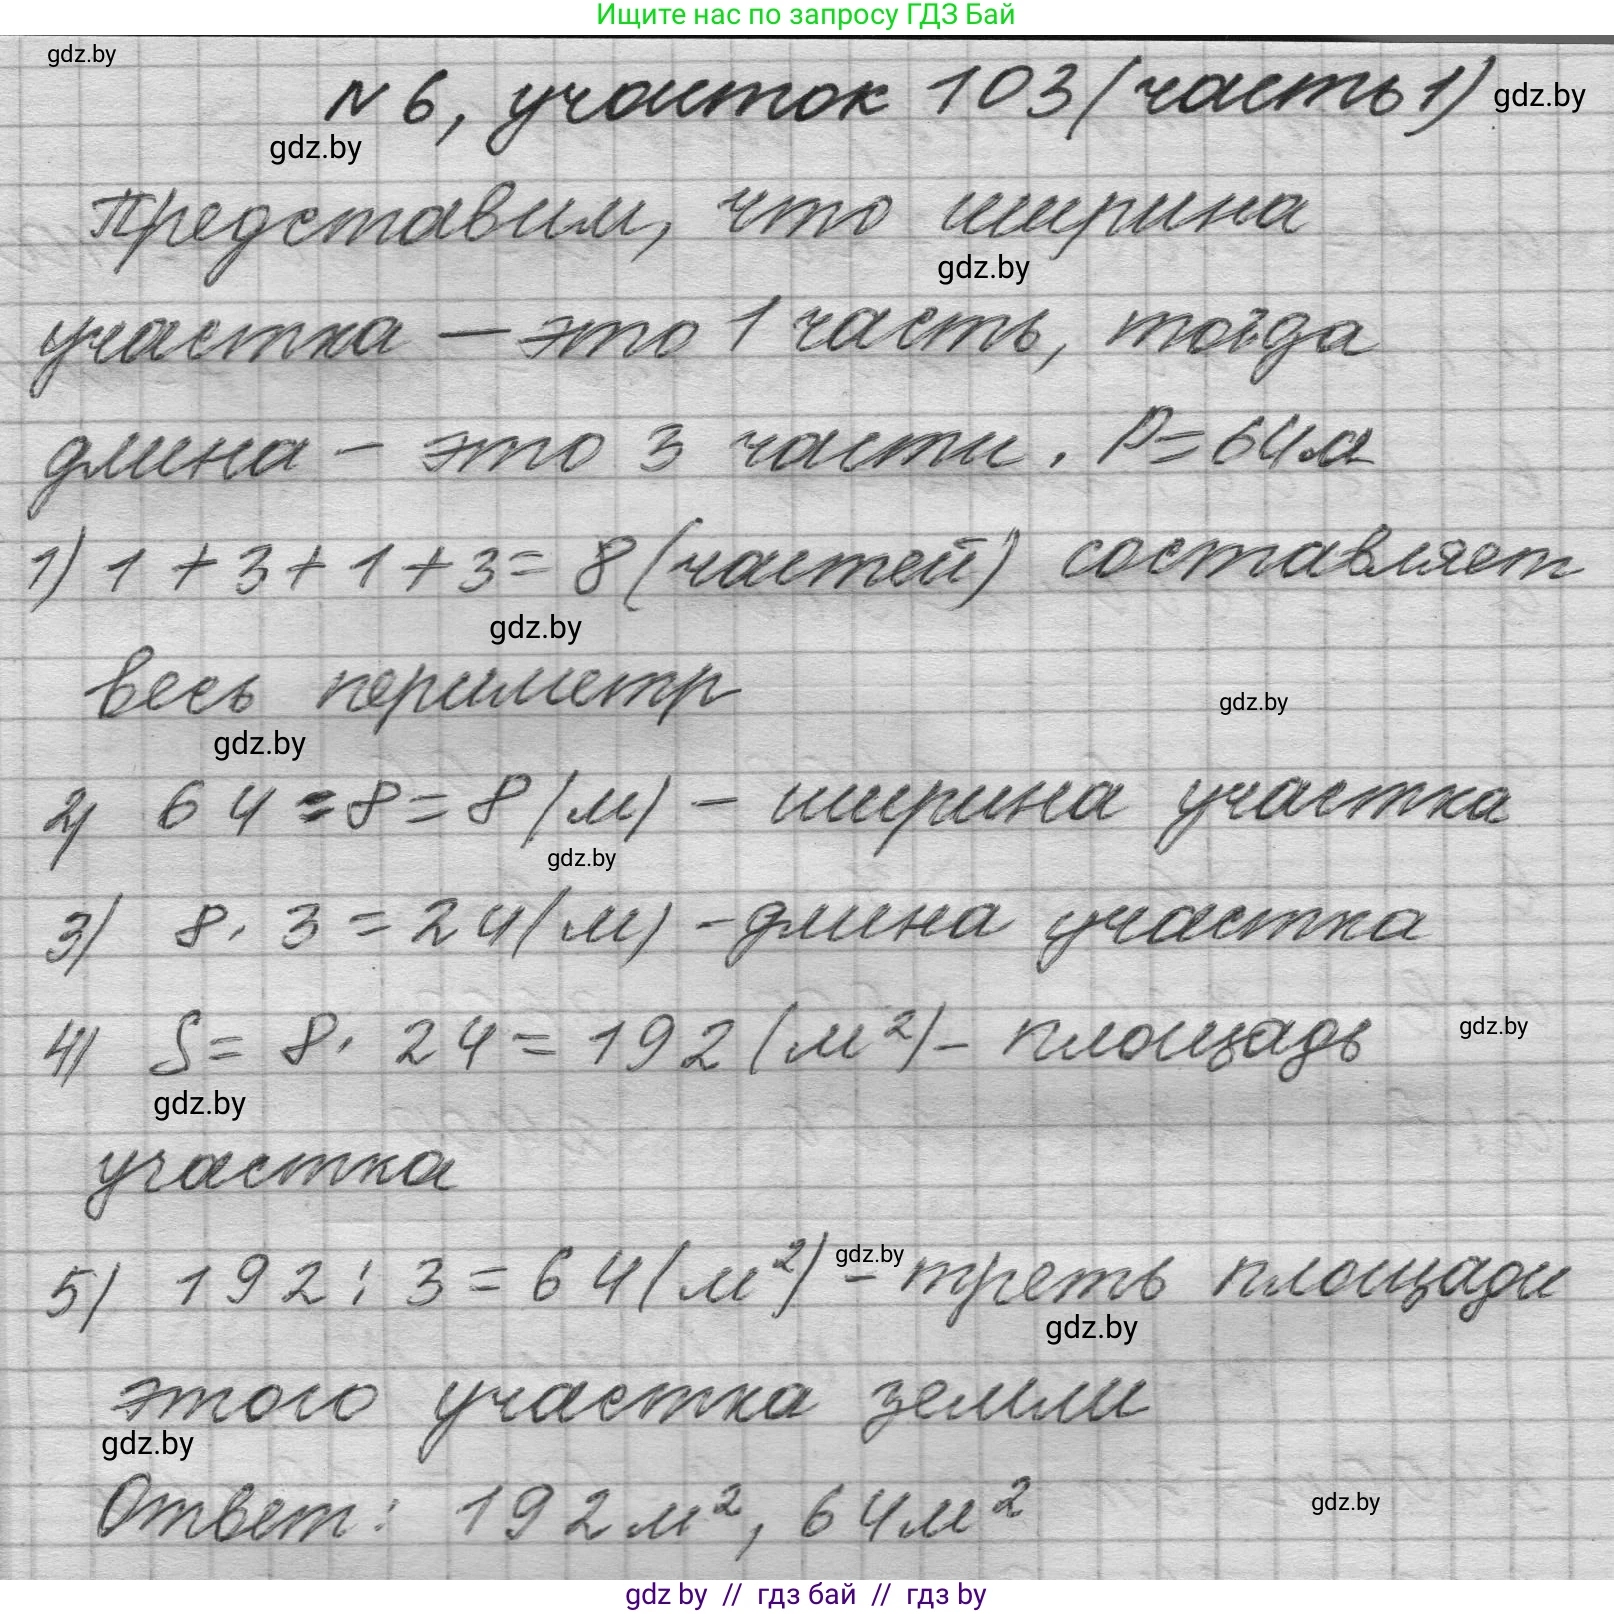 Ищите нас по запросу ГДЗ Бай
gdz.by
№ 6, участок 103 (часть 1) gdz.by
gdz.by
Представим, что ширина
gdz.by
участка — это 1 часть, тогда
длина – это 3 части. P = 64 м
1) 1 + 3 + 1 + 3 = 8 (частей) составляет
gdz.by
весь периметр
gdz.by
gdz.by
2) 64 : 8 = 8 (м) – ширина участка
gdz.by
3) 8 · 3 = 24 (м) – длина участка
4) S = 8 · 24 = 192 (м²) – площадь
gdz.by
gdz.by
участка
gdz.by
5) 192 : 3 = 64 (м²) – треть площади
gdz.by
этого участка земли
gdz.by
Ответ: 192 м², 64 м²
gdz.by
gdz by // гдз бай // гдз by